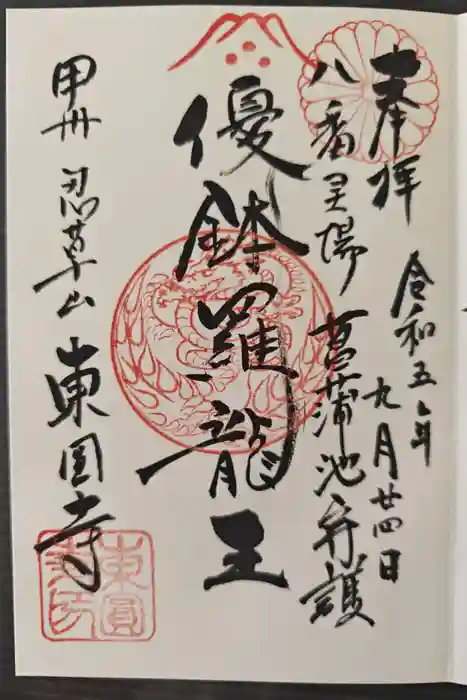 奉拝
令和五年
九月廿四日
八番灵場 菖蒲池守護
優鉢羅龍王
甲州 忍草山 東圓寺
東圓